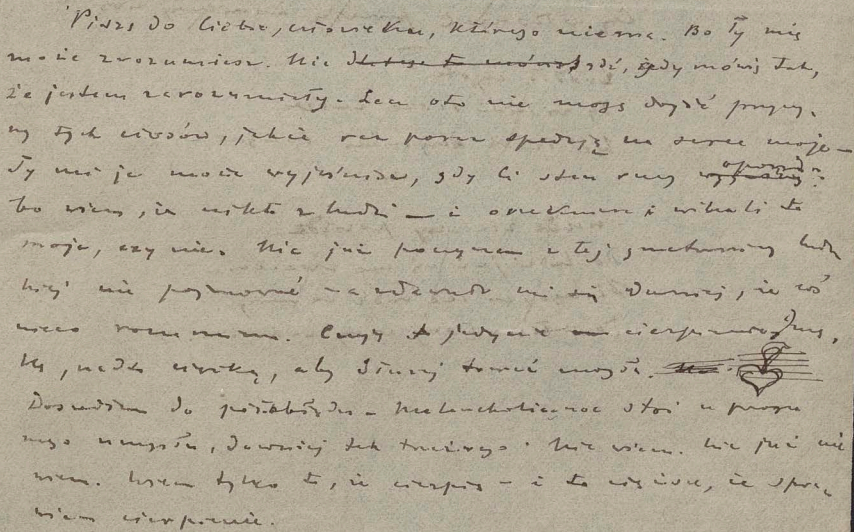 Piszę do Ciebie, człowieku, którego niema. Bo Ty mię
może zrozumiesz. Nie sądź, gdy mówię tak,
że jestem zarozumiały. Lecz oto nie mogę dojść przyczy-
ny tych ciosów, jakie raz poraz spadają na serce moje –
Ty mi je może wyjaśnisz, gdy Ci stan rzeczy
bo wiem, że nikt z ludzi – i
moje, czy nie. Nic już poczynam z tej ludz
kiej nie pojmować a zdawało mi się dawniej, że coś
nieco rozumiem. Czuję jedynie cierpienie
aby dłużej trwać mogła.
Doszedłem do półobłędu – Melancholia stoi u progu
mego umysłu, dawniej tak trzeźwego. Nie wiem. Nic już nie
wiem. Wiem tylko to, że cierpię – i to cięższe, że spra-
wiam cierpienie.